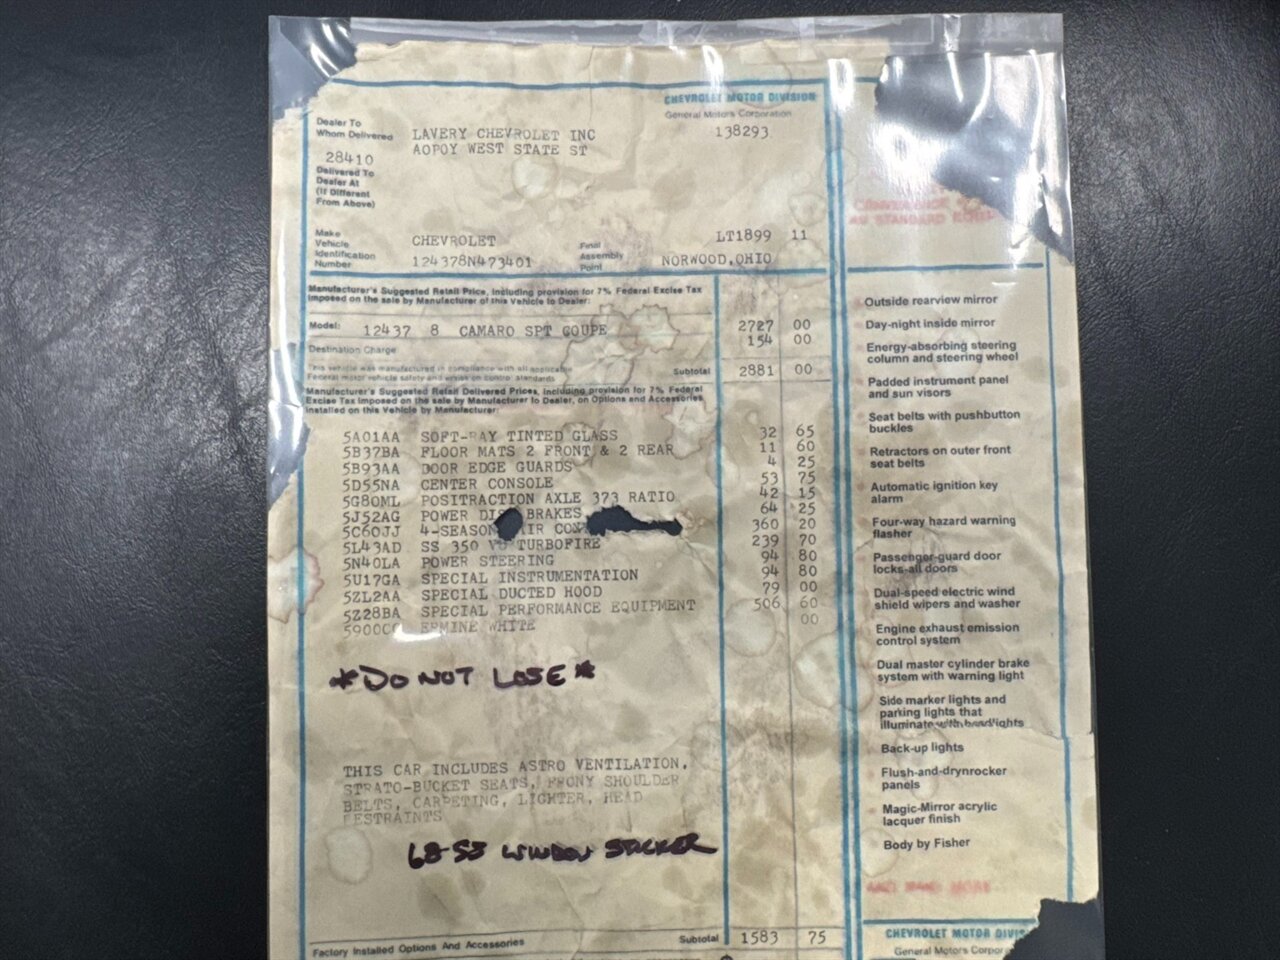 CHEVROLET MOTOR DIVISION
General Motors Corporation
138293
Dealer To
Whom Delivered
LAVERY CHEVROLET INC
AOPOY WEST STATE ST
28410
Delivered To
Dealer At
(If Different
From Above)
Make
Vehicle
Identification
Number
CHEVROLET
124378N473401
Final
Assembly
Point
LT1899 11
NORWOOD,OHIO
Manufacturer's Suggested Retail Price, including provision for 7% Federal Excise Tax
imposed on the sale by Manufacturer of this Vehicle to Dealer:
Model: 12437 8 CAMARO SPT COUPE 2727 00
Destination Charge 154 00
This vehicle was manufactured in compliance with all applicable
Federal motor vehicle safety and control standards
Subtotal 2881 00
Manufacturer's Suggested Retail Delivered Prices, including provision for 7% Federal
Excise Tax imposed on the sale by Manufacturer to Dealer, on Options and Accessories
Installed on this Vehicle by Manufacturer:
5A01AA SOFT-RAY TINTED GLASS 32 65
5B37BA FLOOR MATS 2 FRONT & 2 REAR 11 60
5B93AA DOOR EDGE GUARDS 4 25
5D55NA CENTER CONSOLE 53 75
5G80ML POSITRACTION AXLE 373 RATIO 42 15
5J52AG POWER BRAKES 64 25
5C60JJ 4-SEASON AIR 360 20
5L43AD SS 350 V8 TURBOFIRE 239 70
5N40LA POWER STEERING 94 80
5U17GA SPECIAL INSTRUMENTATION 94 80
5ZL2AA SPECIAL DUCTED HOOD 79 00
5Z28BA SPECIAL PERFORMANCE EQUIPMENT 506 60
5900CC ERMINE WHITE 00
*DO NOT LOSE*
THIS CAR INCLUDES ASTRO VENTILATION,
STRATO-BUCKET SEATS, FRONY SHOULDER
BELTS, CARPETING, LIGHTER, HEAD
RESTRAINTS
68-SS WINDOW STICKER
Factory Installed Options And Accessories Subtotal 1583 75
Outside rearview mirror
Day-night inside mirror
Energy-absorbing steering
column and steering wheel
Padded instrument panel
and sun visors
Seat belts with pushbutton
buckles
Retractors on outer front
seat belts
Automatic ignition key
alarm
Four-way hazard warning
flasher
Passenger-guard door
locks-all doors
Dual-speed electric wind
shield wipers and washer
Engine exhaust emission
control system
Dual master cylinder brake
system with warning light
Side marker lights and
parking lights that
illuminate with headlights
Back-up lights
Flush-and-drynrocker
panels
Magic-Mirror acrylic
lacquer finish
Body by Fisher
AND MANY MORE
CHEVROLET MOTOR DIVIS
General Motors Corpor